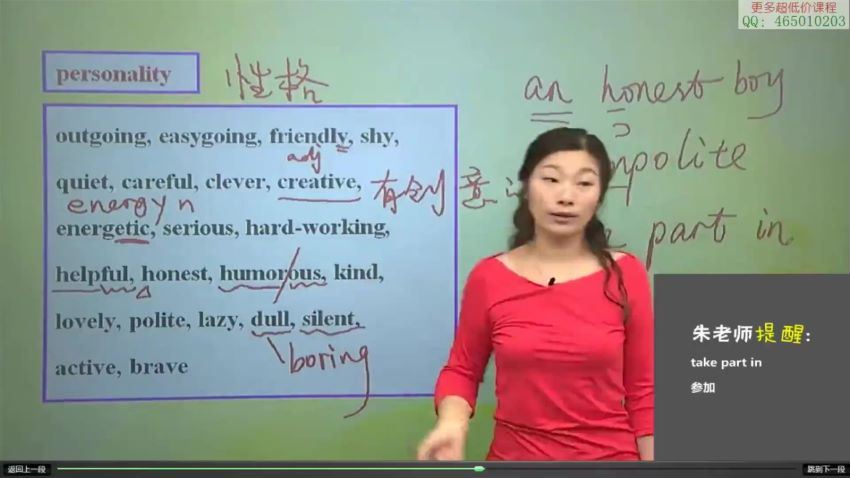 更多超低价课程
QQ: 465010203
personality
性格
n
an honest boy
outgoing, easygoing, friendly, shy,
adj
quiet, careful, clever, creative,
有创意
energy n
energetic, serious, hard-working,
part in
helpful, honest, humorous, kind,
lovely, polite, lazy, dull, silent,
boring
active, brave
朱老师提醒:
take part in
参加
返回上一段
跳到下一段